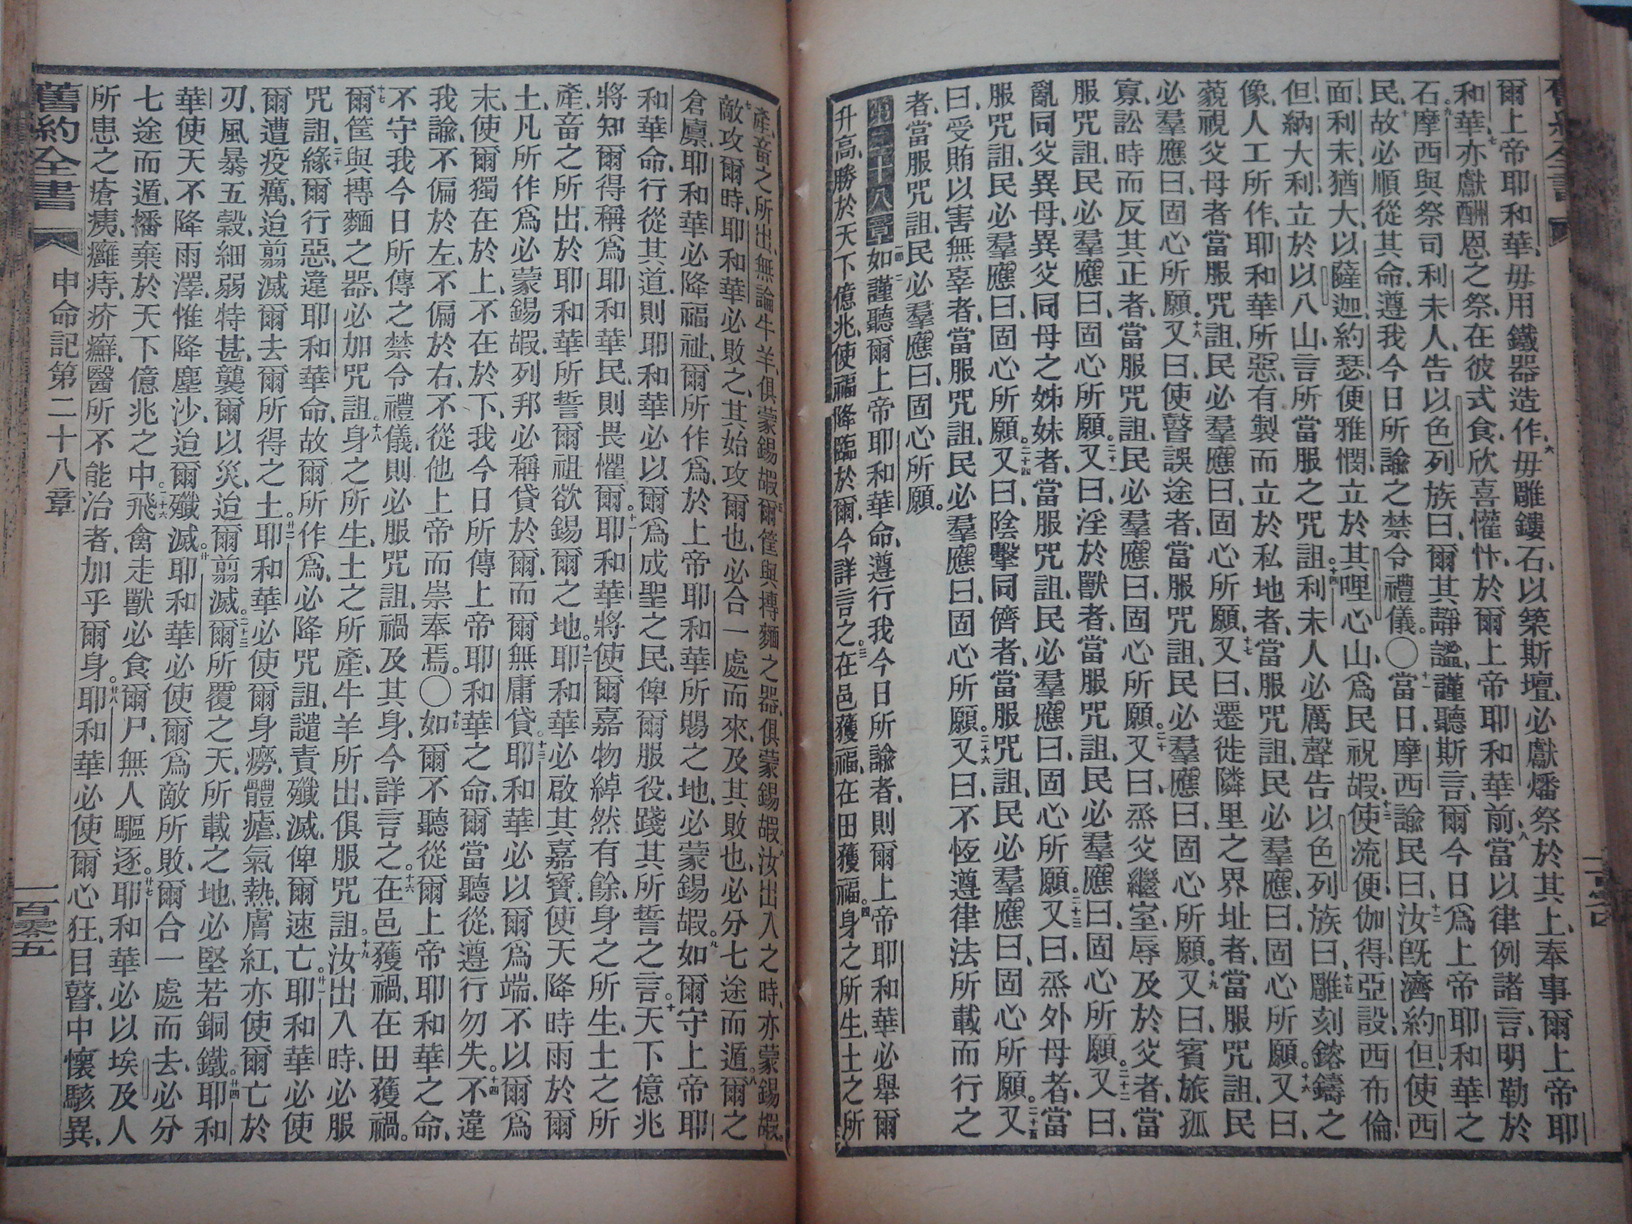 爾上帝耶和華、毋用鐵器造作、六毋雕鏤石、以築斯壇、必獻燔祭於其上、奉事爾上帝耶
和華、七亦獻酬恩之祭、在彼式食、欣喜懽忭、於爾上帝耶和華前、八當以律例諸言、明勒於
石、九摩西與祭司利未人告以色列族曰、爾其靜謐、謹聽斯言、爾今日爲上帝耶和華之
民、十故必順從其命、遵我今日所諭之禁令禮儀。〇十一當日、摩西諭民曰、十二汝旣濟約但、使西
面利未猶大以薩迦約瑟便雅憫立於其哩心山、爲民祝嘏、十三使流便伽得亞設西布倫
但納大利立於以八山、言所當服之咒詛、十四利未人必厲聲告以色列族曰、十五雕刻鎔鑄之
像、人工所作、耶和華所惡、有製而立於私地者、當服咒詛、民必羣應曰、固心所願。十六又曰、
藐視父母者、當服咒詛、民必羣應曰、固心所願、十七又曰、遷徙隣里之界址者、當服咒詛、民
必羣應曰、固心所願、十八又曰、使瞽誤途者、當服咒詛、民必羣應曰、固心所願。十九又曰、賓旅孤
寡、訟時而反其正者、當服咒詛、民必羣應曰、固心所願、二十又曰、烝父繼室、辱及於父者、當
服咒詛、民必羣應曰、固心所願。二十一又曰、淫於獸者、當服咒詛、民必羣應曰、固心所願。二十二又曰、
亂同父異母、異父同母之姊妹者、當服咒詛、民必羣應曰、固心所願、二十三又曰、烝外母者、當
服咒詛、民必羣應曰、固心所願。二十四又曰、陰擊同儕者、當服咒詛、民必羣應曰、固心所願、二十五又
曰、受賄以害無辜者、當服咒詛、民必羣應曰、固心所願。二十六又曰、不恆遵律法所載而行之
者、當服咒詛、民必羣應曰、固心所願。
第二十八章 一節如謹聽爾上帝耶和華命、遵行我今日所諭者、則爾上帝耶和華必舉爾
升高、勝於天下億兆、二使福降臨於爾、今詳言之、三在邑獲福、在田獲福、四身之所生、土之所
產、畜之所出、無論牛羊、俱蒙錫嘏、五爾筐與摶麵之器、俱蒙錫嘏、六汝出入之時、亦蒙錫嘏、
七敵攻爾時、耶和華必敗之、其始攻爾也、必合一處而來、及其敗也、必分七途而遁。八爾之
倉廩、耶和華必降福祉、爾所作爲、於上帝耶和華所賜之地、必蒙錫嘏。九如爾守上帝耶
和華命、行從其道、則耶和華必以爾爲成聖之民、俾爾服役、踐其所誓之言、十天下億兆
將知爾得稱爲耶和華民、則畏懼爾、十一耶和華將使爾嘉物綽然有餘、身之所生、土之所
產、畜之所出、於耶和華所誓爾祖欲錫爾之地、十二耶和華必啟其嘉寶、使天降時雨於爾
土、凡所作爲、必蒙錫嘏、列邦必稱貸於爾、而爾無庸貸、十三耶和華必以爾爲端、不以爾爲
末、使爾獨在於上、不在於下、我今日所傳上帝耶和華之命、爾當聽從、遵行勿失。十四不違
我諭、不偏於左、不偏於右、不從他上帝而崇奉焉。〇十五如爾不聽從爾上帝耶和華之命、
不守我今日所傳之禁令禮儀、則必服咒詛、禍及其身、今詳言之、十六在邑獲禍、在田獲禍。
十七爾筐與摶麵之器、必加咒詛、十八身之所生、土之所產、牛羊所出、俱服咒詛、十九汝出入時、必服
咒詛、二十緣爾行惡、違耶和華命、故爾所作爲、必降咒詛、譴責殲滅、俾爾速亡。廿一耶和華必使
爾遭疫癘、迨翦滅爾、去爾所得之土、廿二耶和華必使爾身癆、體瘧、氣熱、膚紅、亦使爾亡於
刃、風暴五穀、細弱特甚、襲爾以災、迨爾翦滅。二十三爾所覆之天、所載之地、必堅若銅鐵、廿四耶和
華使天不降雨澤、惟降塵沙、迨爾殲滅。廿五耶和華必使爾爲敵所敗、爾合一處而去、必分
七途而遁、播棄於天下億兆之中、二十六飛禽走獸必食爾尸、無人驅逐。廿七耶和華必以埃及人
所患之瘡痍、癰痔疥癬、醫所不能治者、加乎爾身、廿八耶和華必使爾心狂、目瞽、中懷駭異、
舊約全書
申命記第二十八章
一百零五